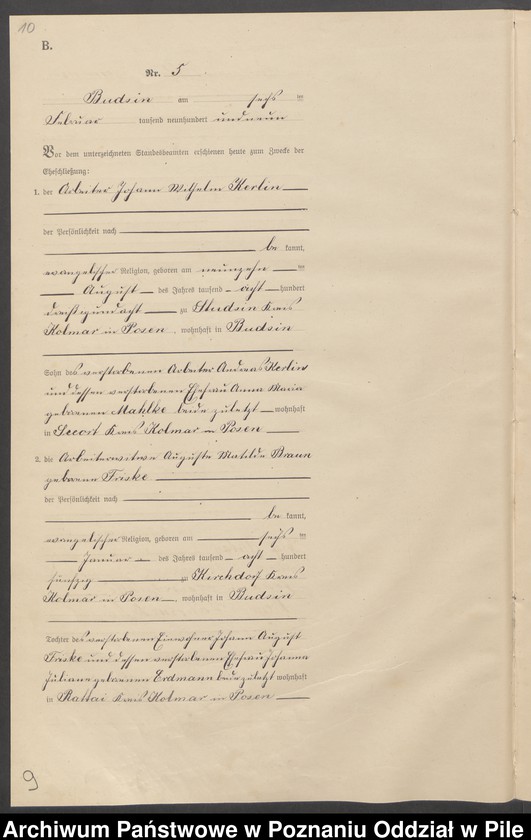 10
B.
Nr. 5
Budsin am sechs ten
Februar tausend neunhundert und neun
Vor dem unterzeichneten Standesbeamten erschienen heute zum Zwecke der
Eheschließung:
1. der Arbeiter Johann Wilhelm Kerlin
der Persönlichkeit nach
be kannt,
evangelischer Religion, geboren am neunzehn ten
August des Jahres tausend acht hundert
dreißig und acht zu Studsin Kreis
Kolmar in Posen, wohnhaft in Budsin
Sohn des verstorbenen Arbeiter Andreas Kerlin
und dessen verstorbenen Ehefrau Anna Maria
geborenen Mahlke beide zuletzt wohnhaft
in Seeort Kreis Kolmar in Posen
2. die Arbeiterwitwe Auguste Matilde Braun
geborene Friske
der Persönlichkeit nach
be kannt,
evangelischer Religion, geboren am sechs ten
Januar des Jahres tausend acht hundert
fünfzig zu Kirchdorf Kreis
Kolmar in Posen, wohnhaft in Budsin
Tochter des verstorbenen Einwohner Johann August
Friske und dessen verstorbenen Ehefrau Johanna
Juliane geborenen Erdmann beide zuletzt wohnhaft
in Rattai Kreis Kolmar in Posen
9
Archiwum Państwowe w Poznaniu Oddział w Pile